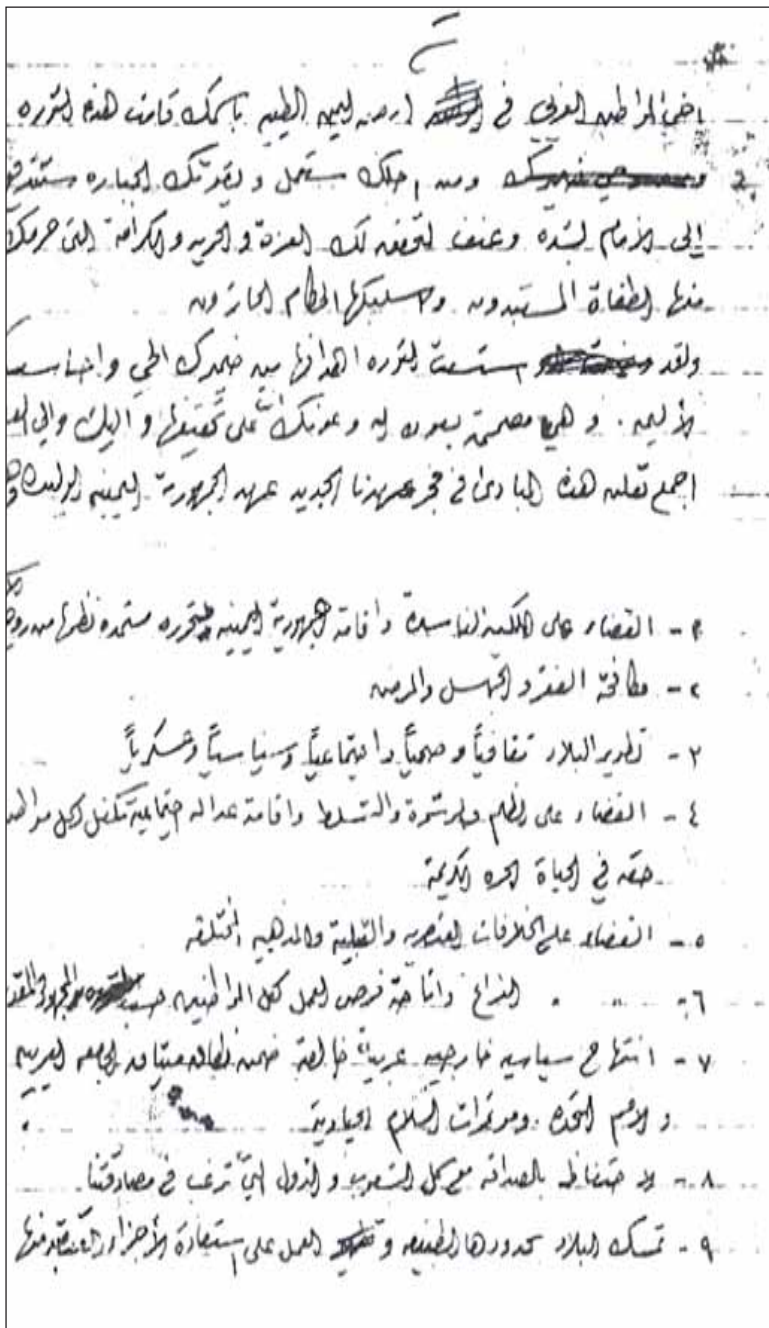 اخي المواطن العربي في ارض اليمن الطيبه باسمك قامت هذه الثوره
ومن اجلك ستعمل وبقوتك الجباره ستندفع
إلى الأمام بشدة وعنف لتحقق لك العزة والحريه والكرامة التي حرمك
منها الطغاة المستبدون وسلبكها الحكام الجائرون
ولقد استمدت الثوره اهدافها من ضميرك الحي واحساسك
الأليم. وهي مصممة بعون الله وعونك على تحقيقها واليك والى
اجمع تعلن هذه المبادئ في فجر عهدنا الجديد عهد الجمهورية اليمنيه الوليده
١- القضاء على الملكية الفاسدة واقامة جمهورية يمنيه متحرره مستمده نظمها من روح
٢- مكافحة الفقر والجهل والمرض
٣- تطوير البلاد ثقافياً وصحياً واجتماعياً وسياسياً وعسكرياً
٤- القضاء على الظلم والرشوة والتسلط واقامة عداله اجتماعية تكفل لكل مواطن
حقه في الحياة الحره الكريمة
٥- القضاء على الخلافات العنصريه والقبلية والمذهبيه المختلقه
٦- " " الفراغ واتاحة فرص العمل لكل المواطنين حسب
٧- انتهاج سياسيه خارجيه عربية خالصة ضمن نطاق ميثاق الجامعه العربيه
والامم المتحده. ومؤتمرات السلام الحيادية
٨- الاحتفاظ بالصداقه مع كل الشعوب والدول التي ترغب في مصادقتنا
٩- تمسك البلاد بحدودها الطبيعيه و العمل على استعادة الأجزاء المغتصبه منها